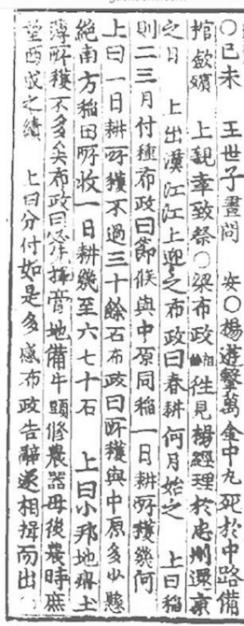 ○己未 王世子晝問 安○楊遊擊萬金中丸死於中路備
棺斂殯 上親幸致祭○梁布政往見楊經理於忠州還京
之日 上出漢江江上迎之布政曰春耕何月始之 上曰稻
則二三月付種布政曰節候與中原同稻一日耕所穫幾何
上曰一日耕所穫不過三十餘石布政曰所穫與中原多少懸
絶南方稻田所收一日耕幾至六七十石 上曰小邦地瘠土
薄所穫不多矣布政曰擇膏地備牛頭修農器毋後農時庶
望西成之績 上曰分付如是多感布政告辭遂相揖而出